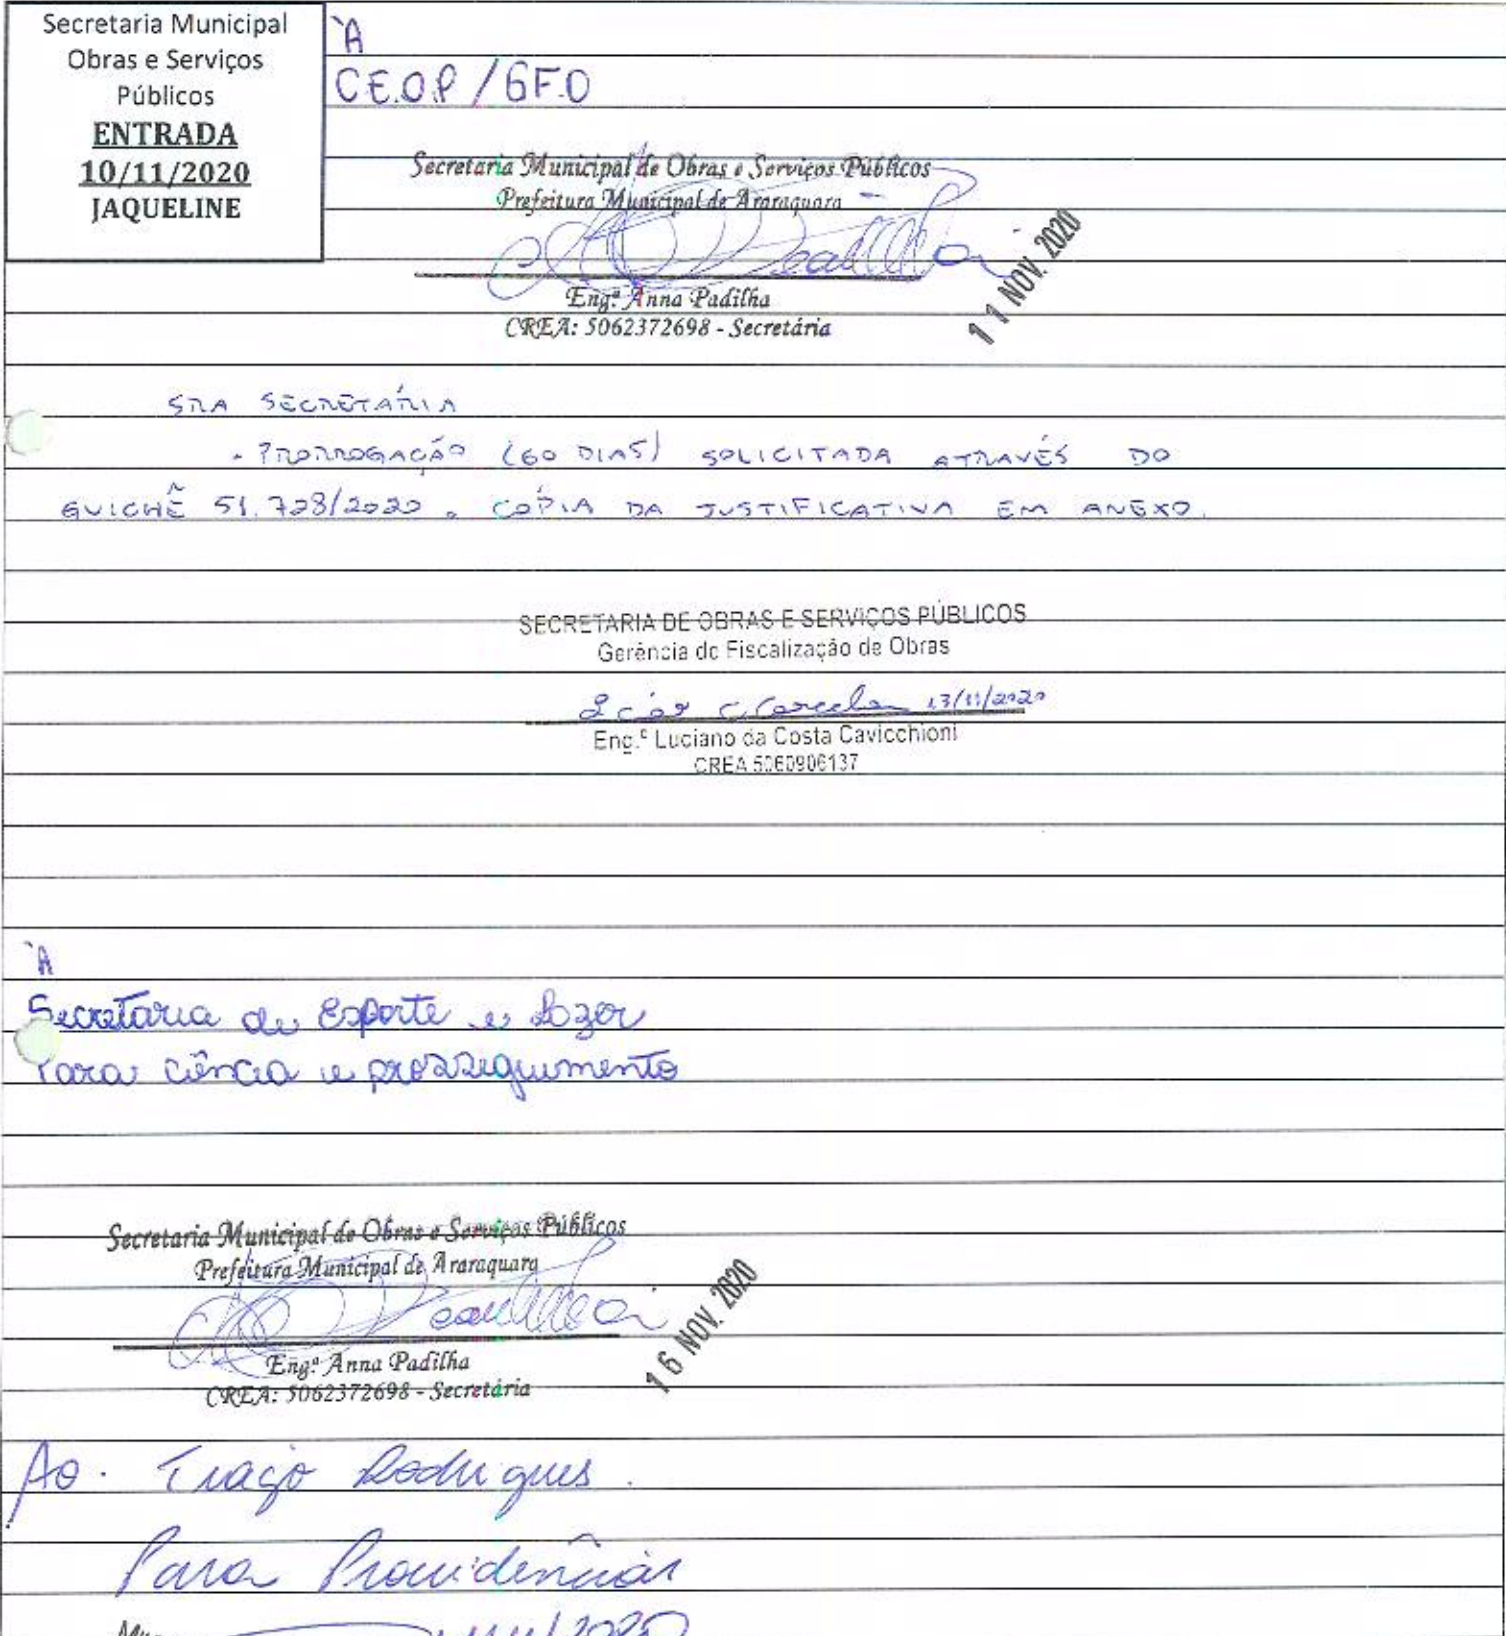 Secretaria Municipal
Obras e Serviços
Públicos
ENTRADA
10/11/2020
JAQUELINE
À
C.E.O.P / GF.O
Secretaria Municipal de Obras e Serviços Públicos
Prefeitura Municipal de Araraquara
Eng.ª Anna Padilha
CREA: 5062372698 - Secretária
11 NOV. 2020
SRA SECRETÁRIA
- PRORROGAÇÃO (60 DIAS) SOLICITADA ATRAVÉS DO
GUICHÊ 51.728/2020. CÓPIA DA JUSTIFICATIVA EM ANEXO.
SECRETARIA DE OBRAS E SERVIÇOS PÚBLICOS
Gerência de Fiscalização de Obras
13/11/2020
Eng.º Luciano da Costa Cavicchioni
CREA 5060906137
À
Secretaria de Esporte e Lazer
Para ciência e prosseguimento
Secretaria Municipal de Obras e Serviços Públicos
Prefeitura Municipal de Araraquara
Eng.ª Anna Padilha
CREA: 5062372698 - Secretária
16 NOV. 2020
Ao. Tiago Rodrigues.
Para Providências